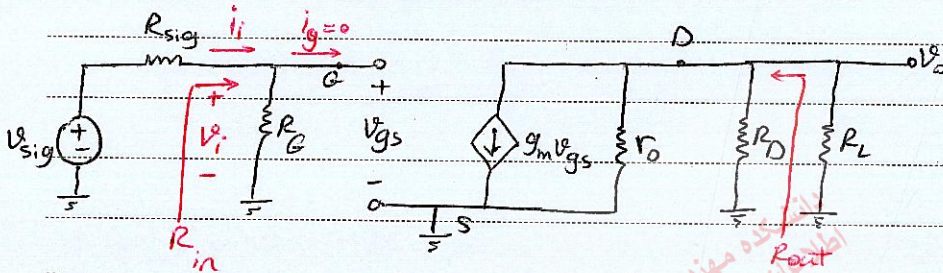 R_sig i_i i_g=0 G D v_o
v_sig + - + v_i - R_G + v_gs - g_m v_gs r_o R_D R_L
S
R_in R_out
دانشکده